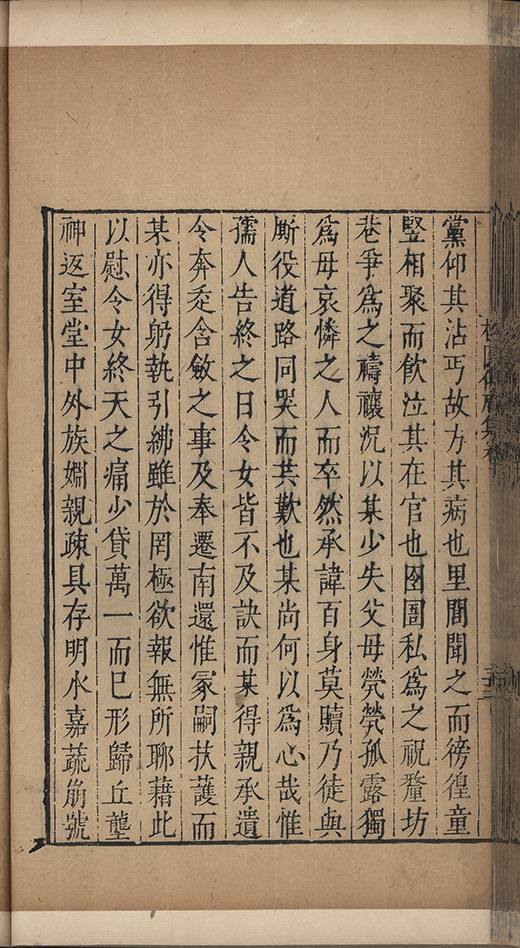 黨仰其沾丐故方其病也里閭聞之而徬徨童
竪相聚而飲泣其在官也囹圄私為之祝釐坊
巷爭為之禱禳況以某少失父母煢煢孤露獨
為母哀憐之人而卒然承諱百身莫贖乃徒與
廝役道路同哭而共歎也某尚何以為心哉惟
孺人告終之日令女皆不及訣而某得親承遺
令奔走含斂之事及奉遷南還惟冢嗣扶護而
某亦得躬執引紼雖於罔極欲報無所聊藉此
以慰令女終天之痛少貸萬一而已形歸丘壟
神返室堂中外族姻親疎具存明水嘉蔬崩號